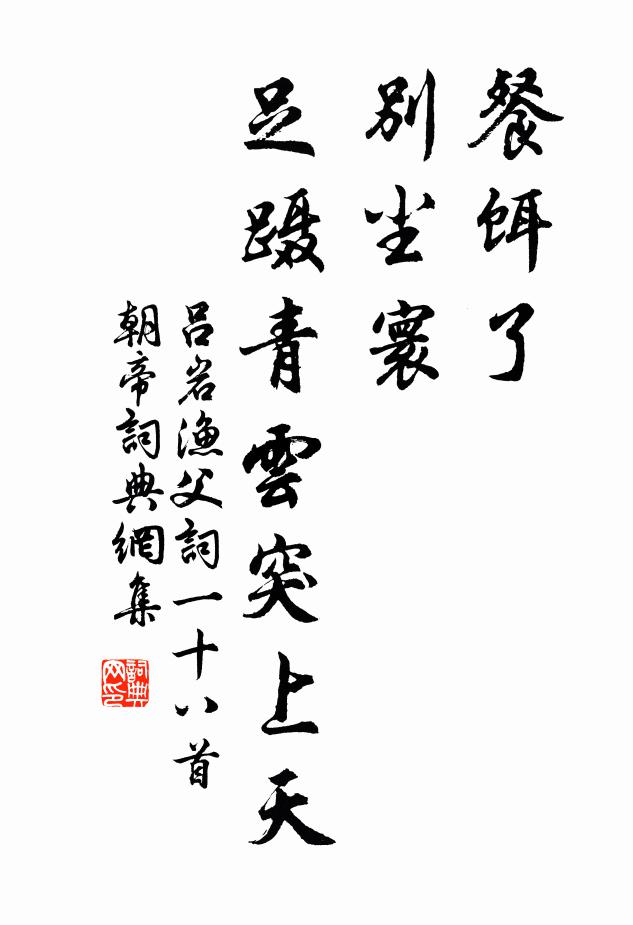 餐餌了
别尘寰
足蹑青雲突上天
吕岩漁父詞一十八首
朝帝詞典網集
詞典网印